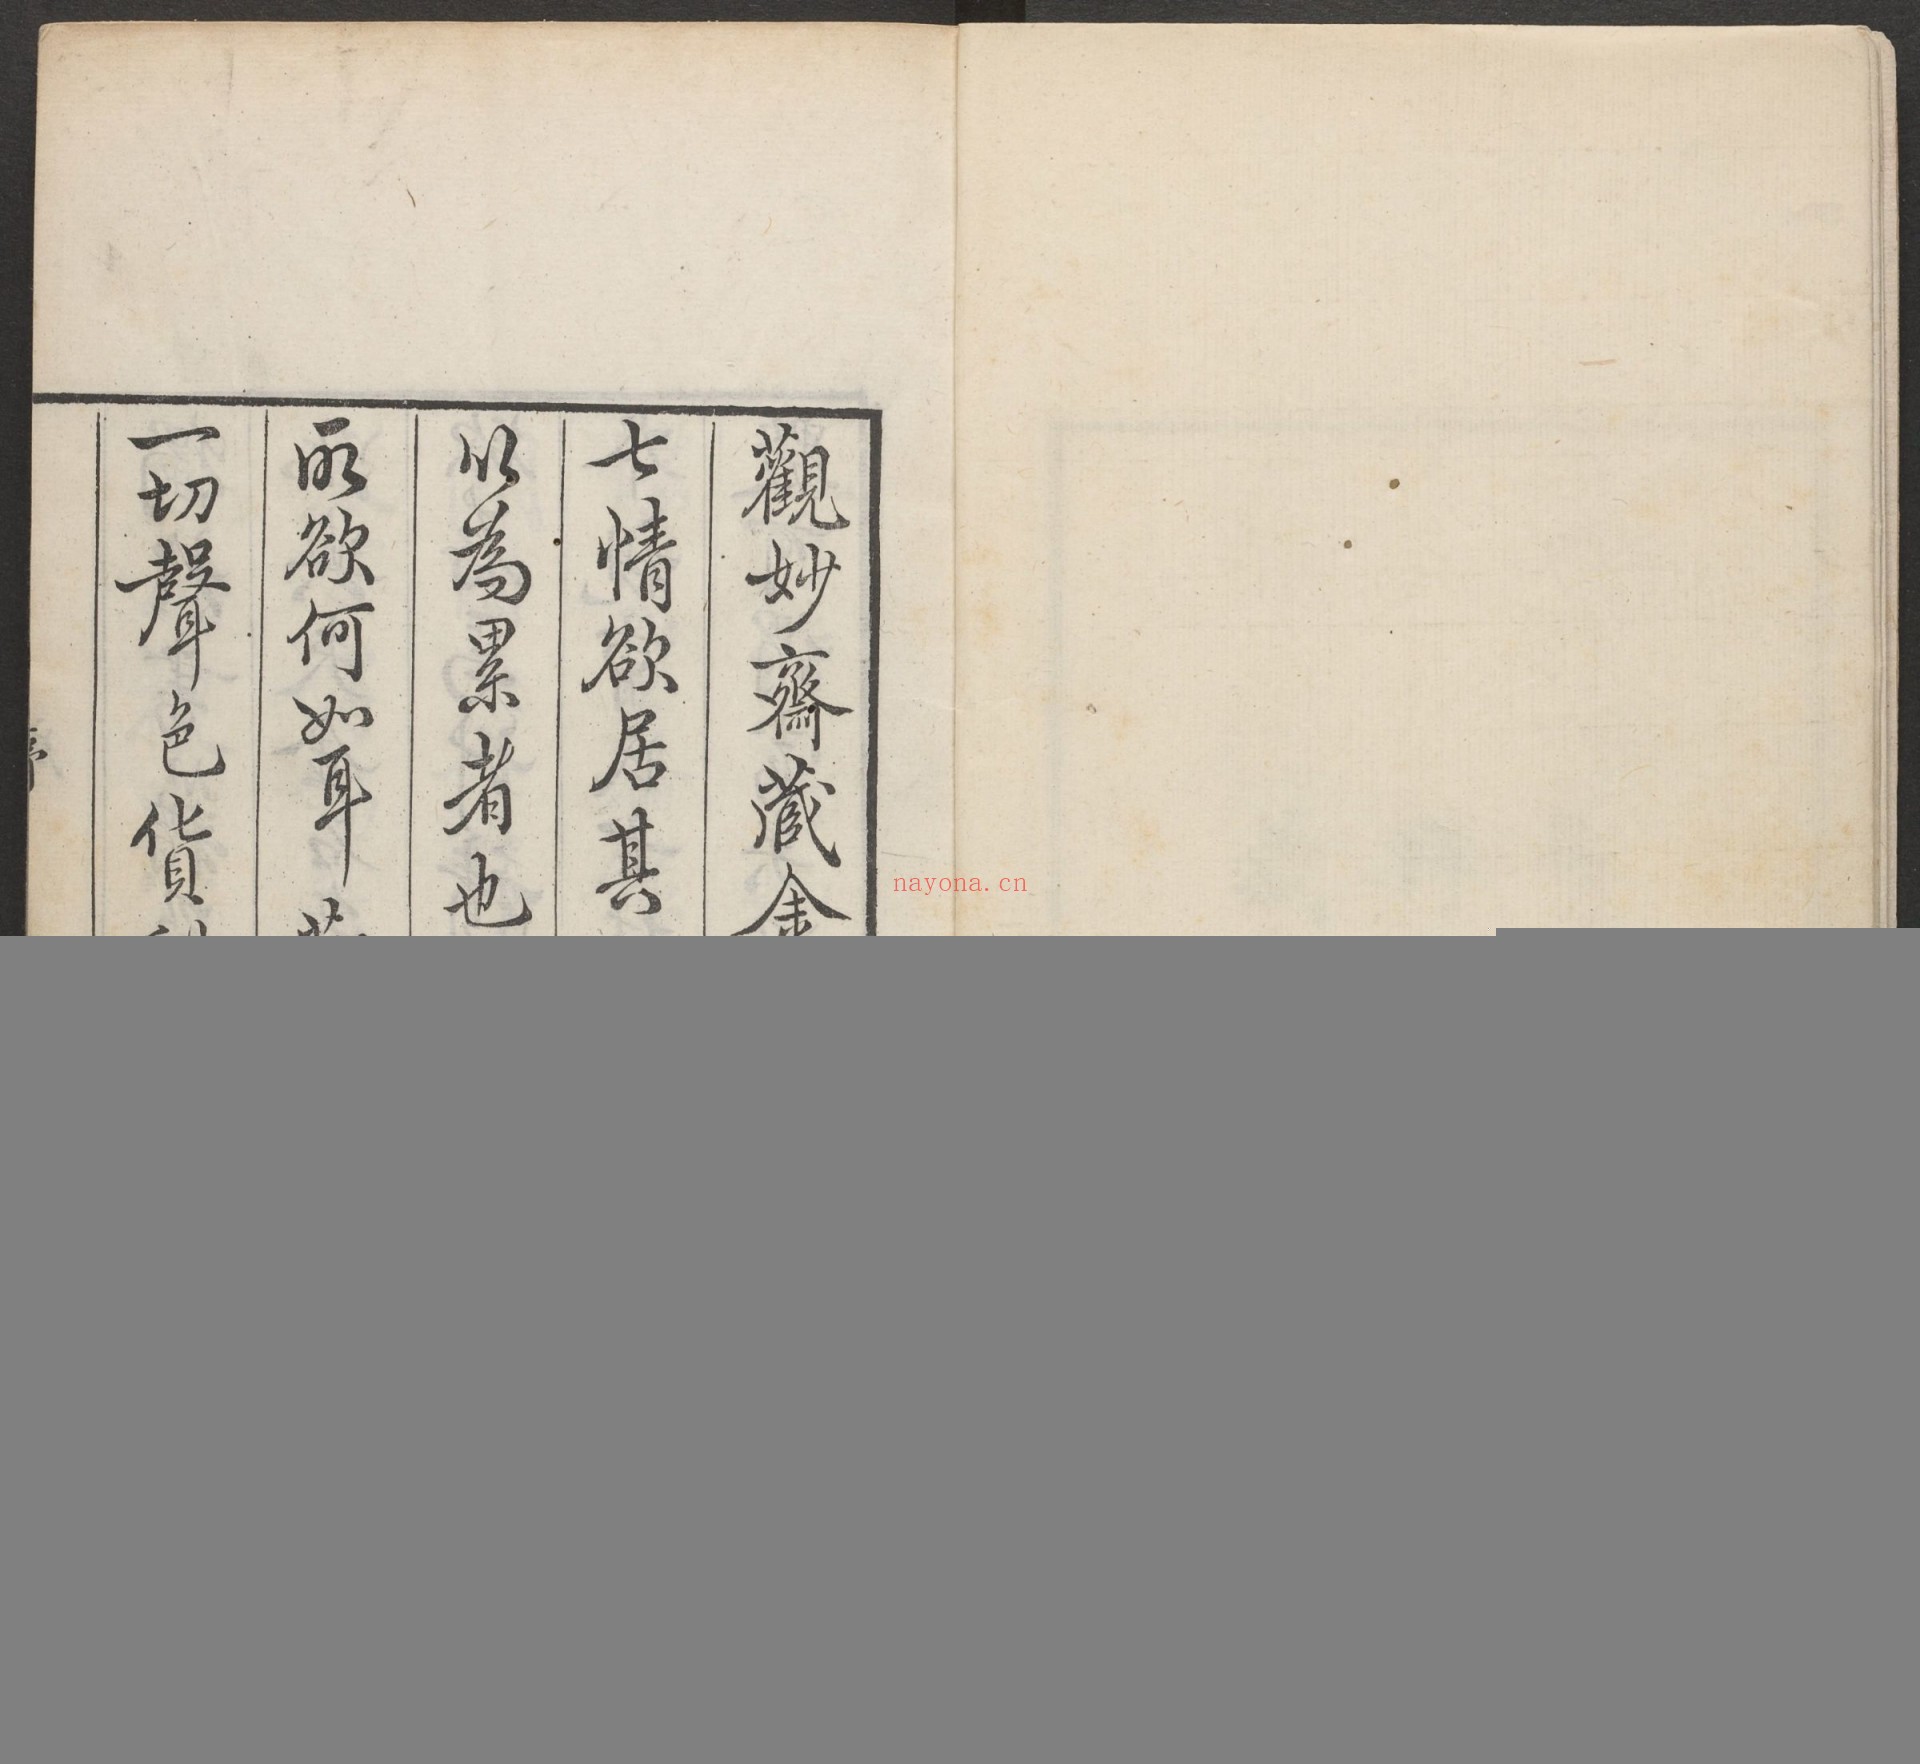 觀妙齋藏金
七情欲居其
以為累者也
所欲何如耳
一切聲色貨
序
nayona.cn